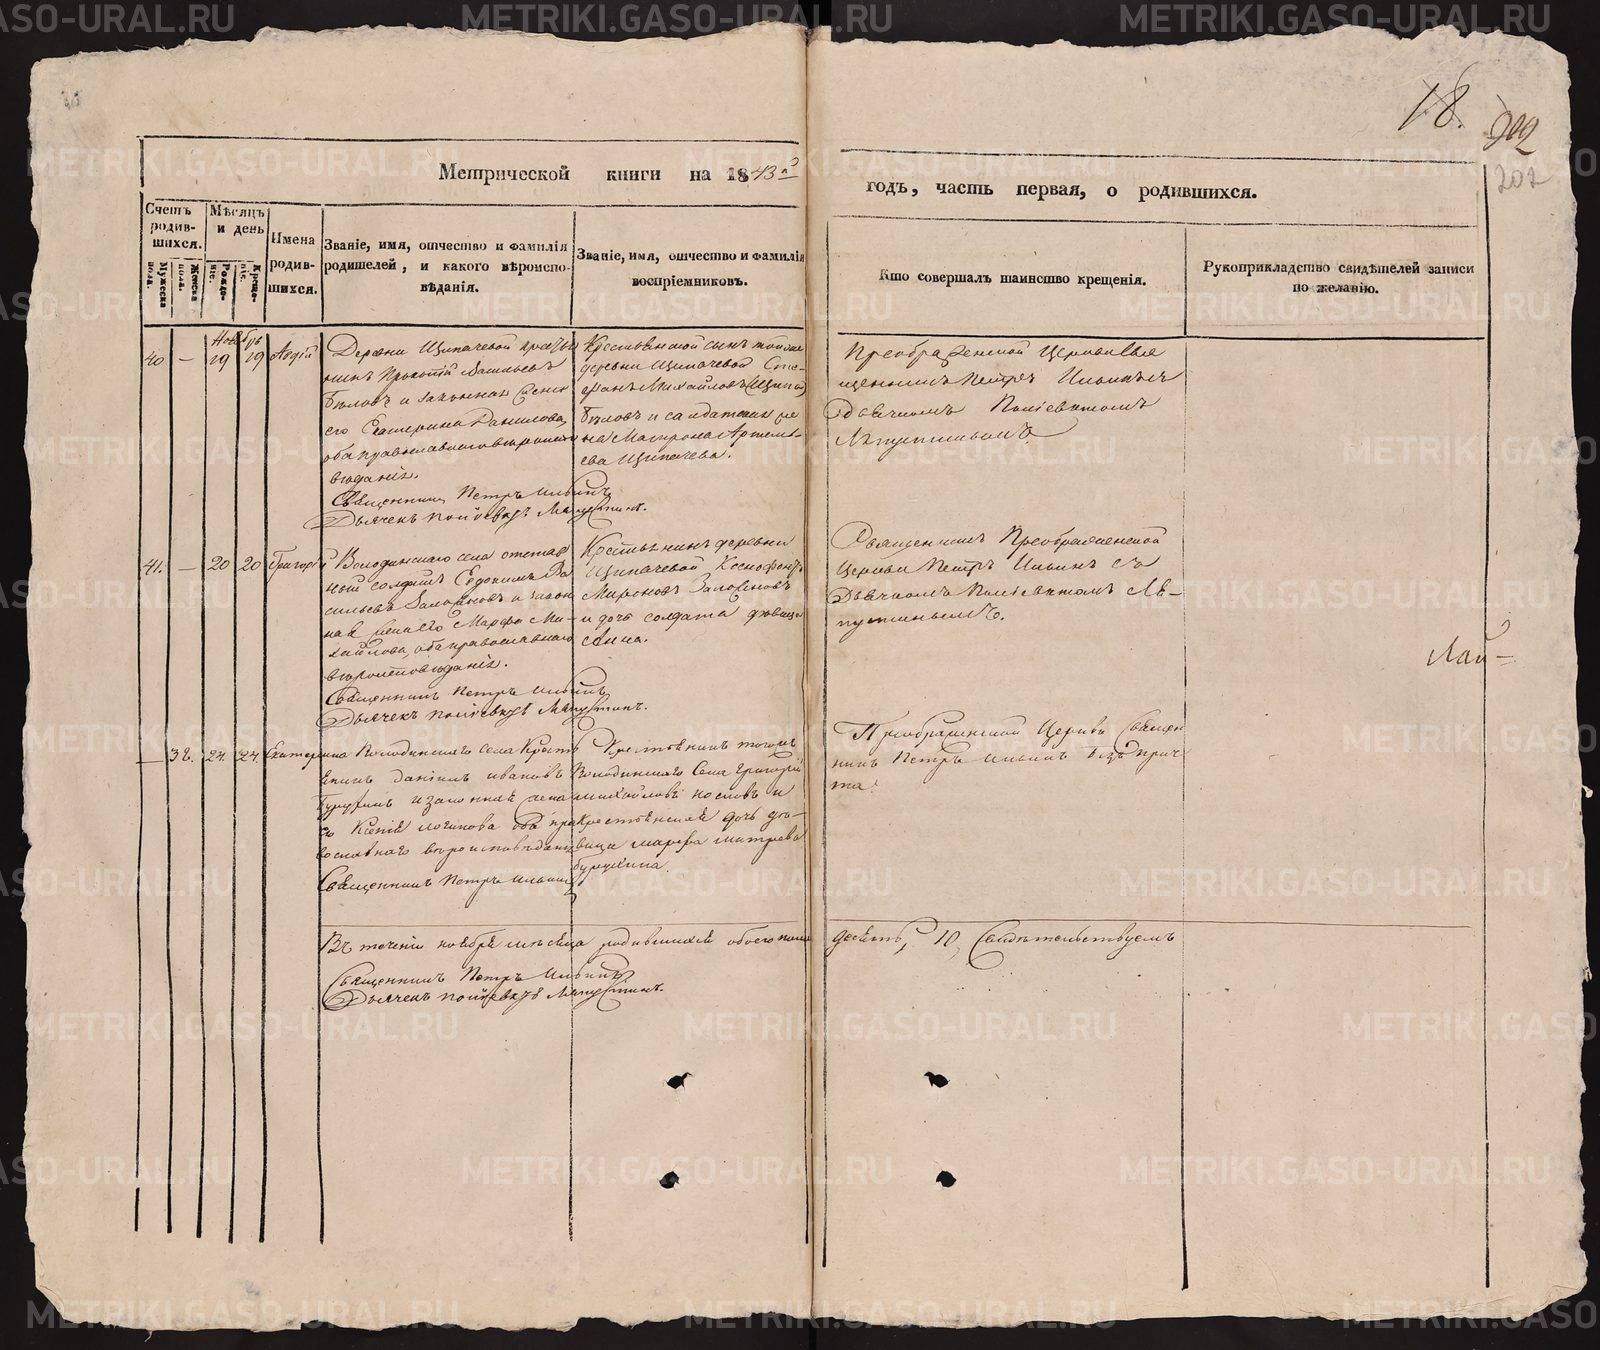 18.
202
202
Метрической книги на 1843й
годъ, часть первая, о родившихся.
Счетъ родившихся.
Мужеска пола.
Женска пола.
Мѣсяцъ и день
Рожденiе.
Крещенiе.
Имена родившихся.
Званiе, имя, отчество и фамилiя
родителей, и какого вѣроиспо-
вѣданiя.
Званiе, имя, отчество и фамилiя
воспрiемниковъ.
Кто совершалъ таинство крещенiя.
Рукоприкладство свидѣтелей записи
по желанiю.
Ноябрь
40 — 19 19 Авдiй
Деревни Щипачевой
Прокопiй Васильевъ
и законная жена
его Екатерина Данилова,
оба православнаго вѣроиспо-
вѣданiя.
Священникъ Петръ Ильинъ
Дьячекъ Лапустинъ.
Крестьянской сынъ той же
деревни Щипачевой Сте-
фанъ Михайловъ
и салдатская же-
на Матрона Артемь-
ева Щипачева.
Преображенской Церкви Свя
щенникъ Петръ Ильинъ съ
Дьячкомъ
Лапустинымъ.
41. — 20 20 Григорiй
Володинскаго села отстав
ной солдатъ Евдокимъ Ва
сильевъ и закон
ная жена его Марфа Ми-
хайлова, оба православнаго
вѣроисповѣданiя.
Священникъ Петръ Ильинъ
Дьячекъ Лапустинъ.
Крестьянинъ деревни
Щипачевой Ксенофонтъ
Мироновъ
и дочь солдата дѣвица
Анна.
Священникъ Преображенской
Церкви Петръ Ильинъ съ
Дьячкомъ Ла-
пустинымъ.
Лай—
— 38. 24. 24. Екатерина
Володинскаго села Кресть
янинъ данiилъ ивановъ
Бурухинъ и законная жена е
го Ксенiя логинова оба пра
вославнаго вѣроисповѣданiя
Священникъ Петръ Ильинъ
Крестьянинъ тогожъ
Володинскаго Села григорiй
михайловъ носковъ и
крестьянская дочь дѣ—
вица марфа митрева
бурухина.
Преображенской Церкви Священ
никъ Петръ ильинъ безъ прич
та.
Въ теченiи ноября мѣсяца родившихся обоего пола
десять, 10, Свидѣтельствуемъ
Священникъ Петръ Ильинъ
Дьячекъ Лапустинъ.
METRIKI.GASO-URAL.RU